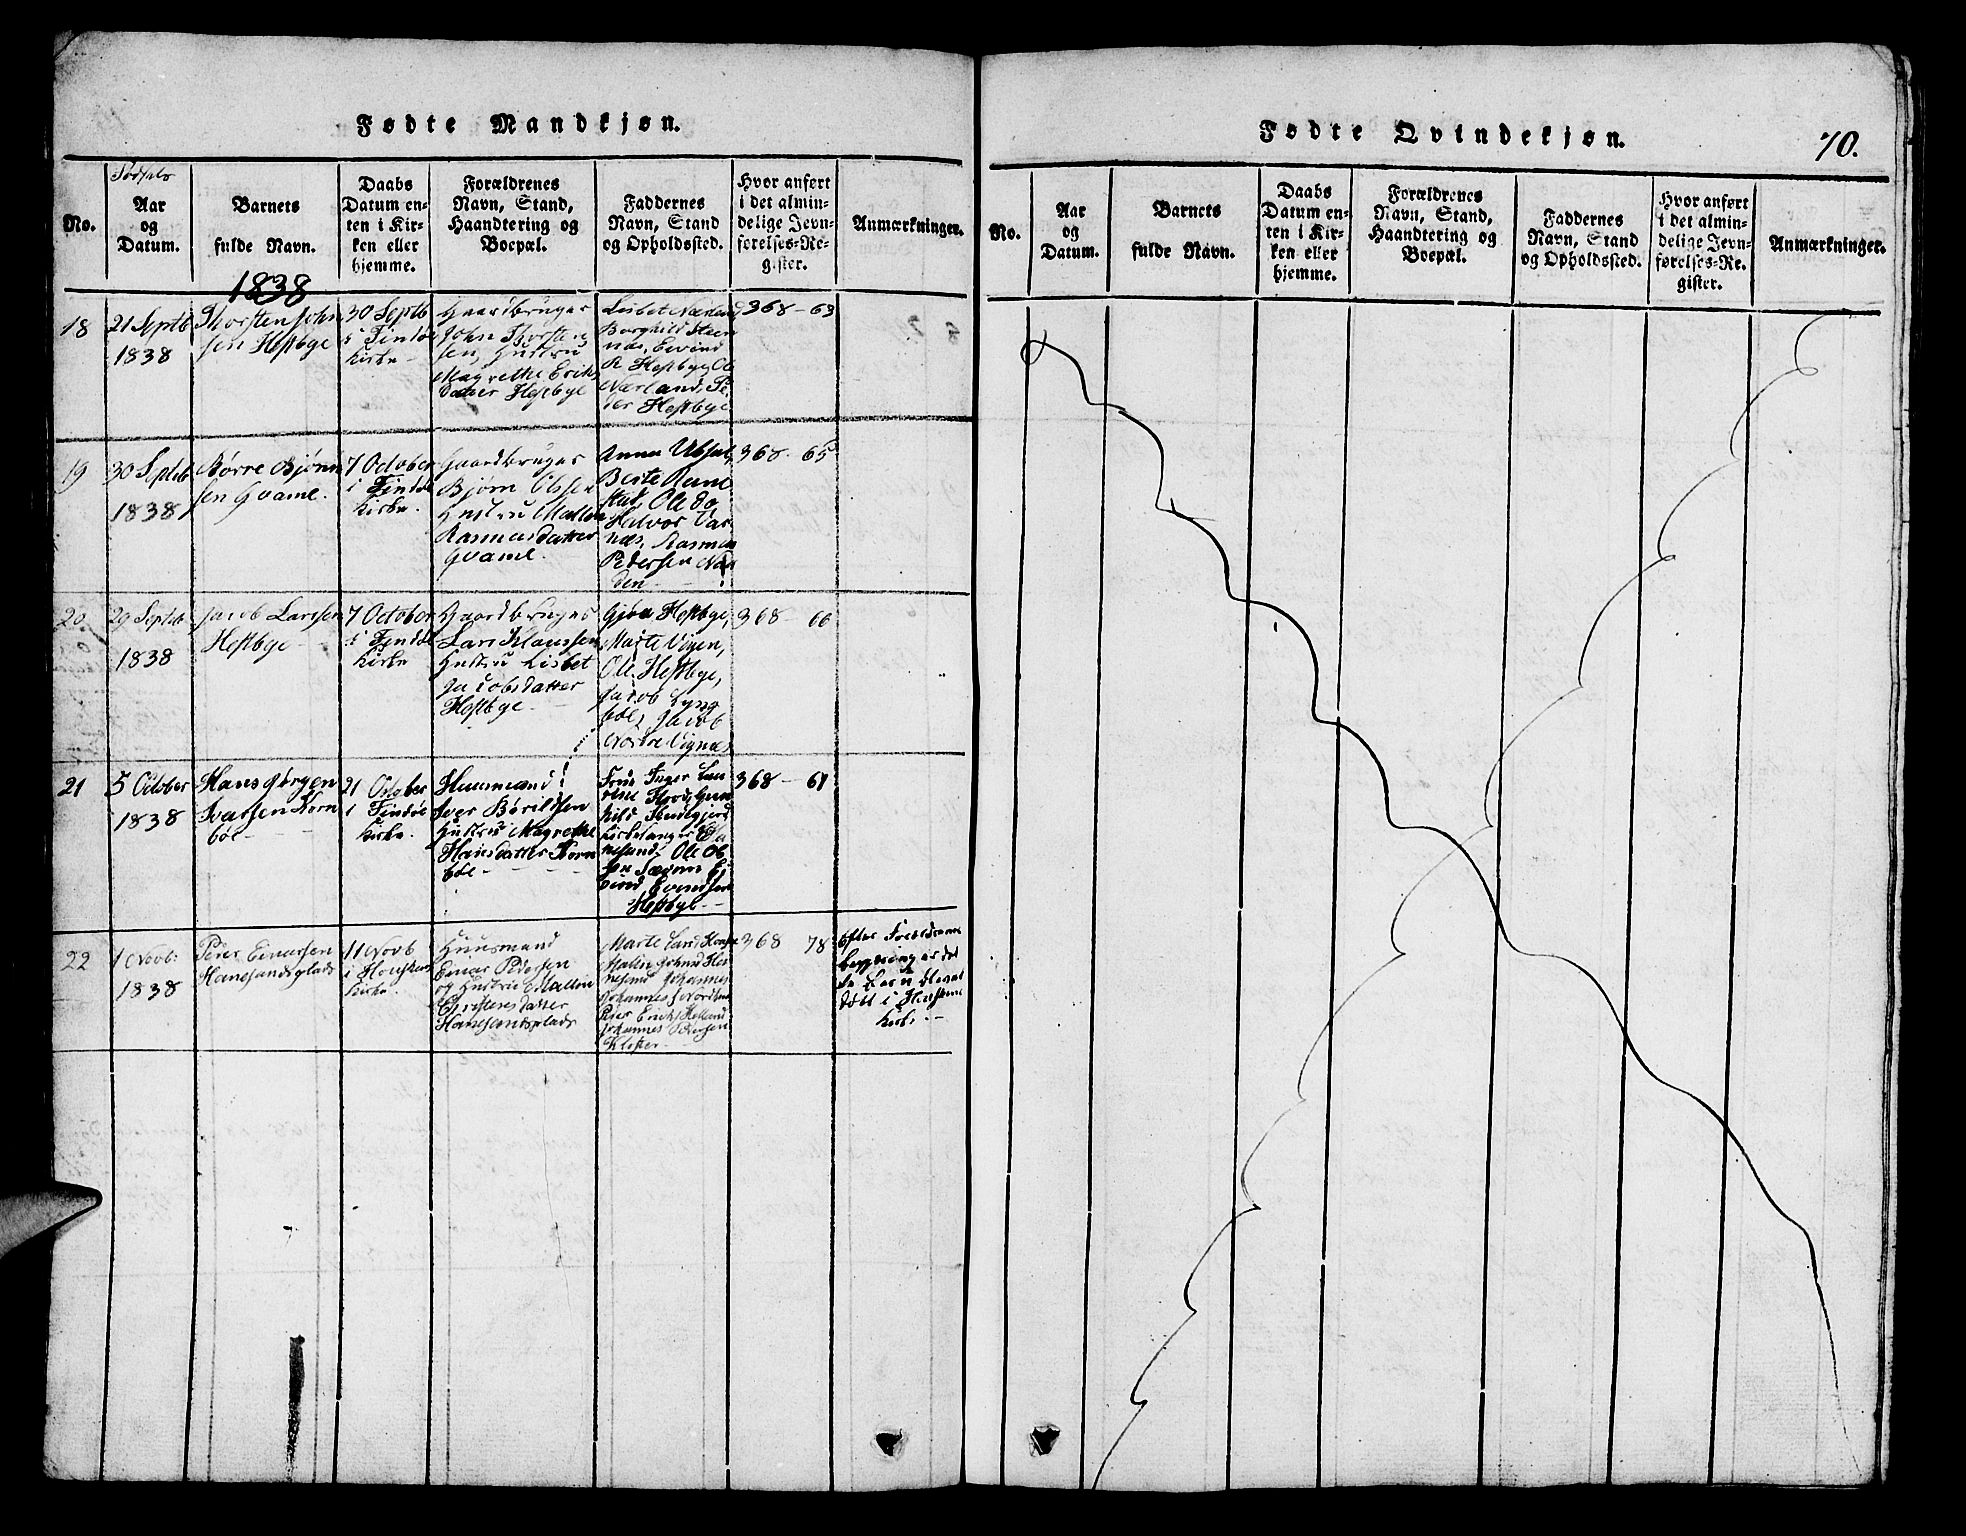 Fødte Mandkjøn.
No.
Fødsels
Aar
og
Datum.
Barnets
fulde Navn.
Daabs
Datum en-
ten i Kir-
ken eller
hjemme.
Forældrenes
Navn, Stand,
Haandtering og
Boepæl.
Faddernes
Navn, Stand
og Opholdssted.
Hvor anført
i det almin-
delige Jevn-
førelses-Re-
gister.
Anmærkninger.
1838
18
21 Septb
1838
Thorsten John
sen Hestbye
30 Septb
i Findø
Kirke
Gaardbruger
John Thorsten
sen, Hustru
Magrethe Erik
datter Hestbye
Lisbet
Borghild Steen
næs, Eivind
R Hestbye, Ole
Nærland, Pe
der Hestbye
368 - 63
19
30 Septb
1838
Børre Bjørn
sen Qvame.
7 October
i Findø
Kirke.
Gaardbruger
Bjørn Olsen
Hustru Mallen
Rasmusdatter
Qvame.
Anna
Berte Renne
stad, Ole do
Halvor Var
næs, Rasmus
Pedersen
368 - 65
20
29 Septb
1838
Jacob Larssen
Hestbye
7 October
i Findø
Kirke
Gaardbruger
Lars Klaussen
Hustru Lisbet
Jacobsdatter
Hestbye
Gjøru Hestbye,
Marte Vigen,
Ole Hestbye,
Jacob Lyng
bøl, Jacob
Nordre Vignæs
368 - 66
21
5 October
1838
Hans Jørgen
Ivarsen Korn
bøl
21 October
i Findø
Kirke.
Huusmand
Iver Børildsen
Hustru Magrethe
Hansdatter Korn
bøl
Frue Inger Lau
rine Flood, Gun
hild
Kirkesanger
Ole
Ei
vind Evindsen
Hestbye
368 - 67
22
1 Novb:
1838
Peder Einarsen
Hanesandsplads
11 Novb
i
Kirke.
Huusmand
Einar Pedersen
og Hustrue Mallin
Christensdatter
Hanesandsplads
Marte
Malin
Johannes
Johannes
Peder Eriks Helland
Johannes Pedersen
Kloster
368 78
Efter Forældrenes
begjering er det
te Barn blevet
døbt i
Kirke.
Fødte Qvindekjøn.
70.
No.
Aar
og
Datum.
Barnets
fulde Navn.
Daabs
Datum en-
ten i Kir-
ken eller
hjemme.
Forældrenes
Navn, Stand,
Haandtering og
Boepæl.
Faddernes
Navn, Stand
og Opholdssted.
Hvor anført
i det almin-
delige Jevn-
førelses-Re-
gister.
Anmærkninger.